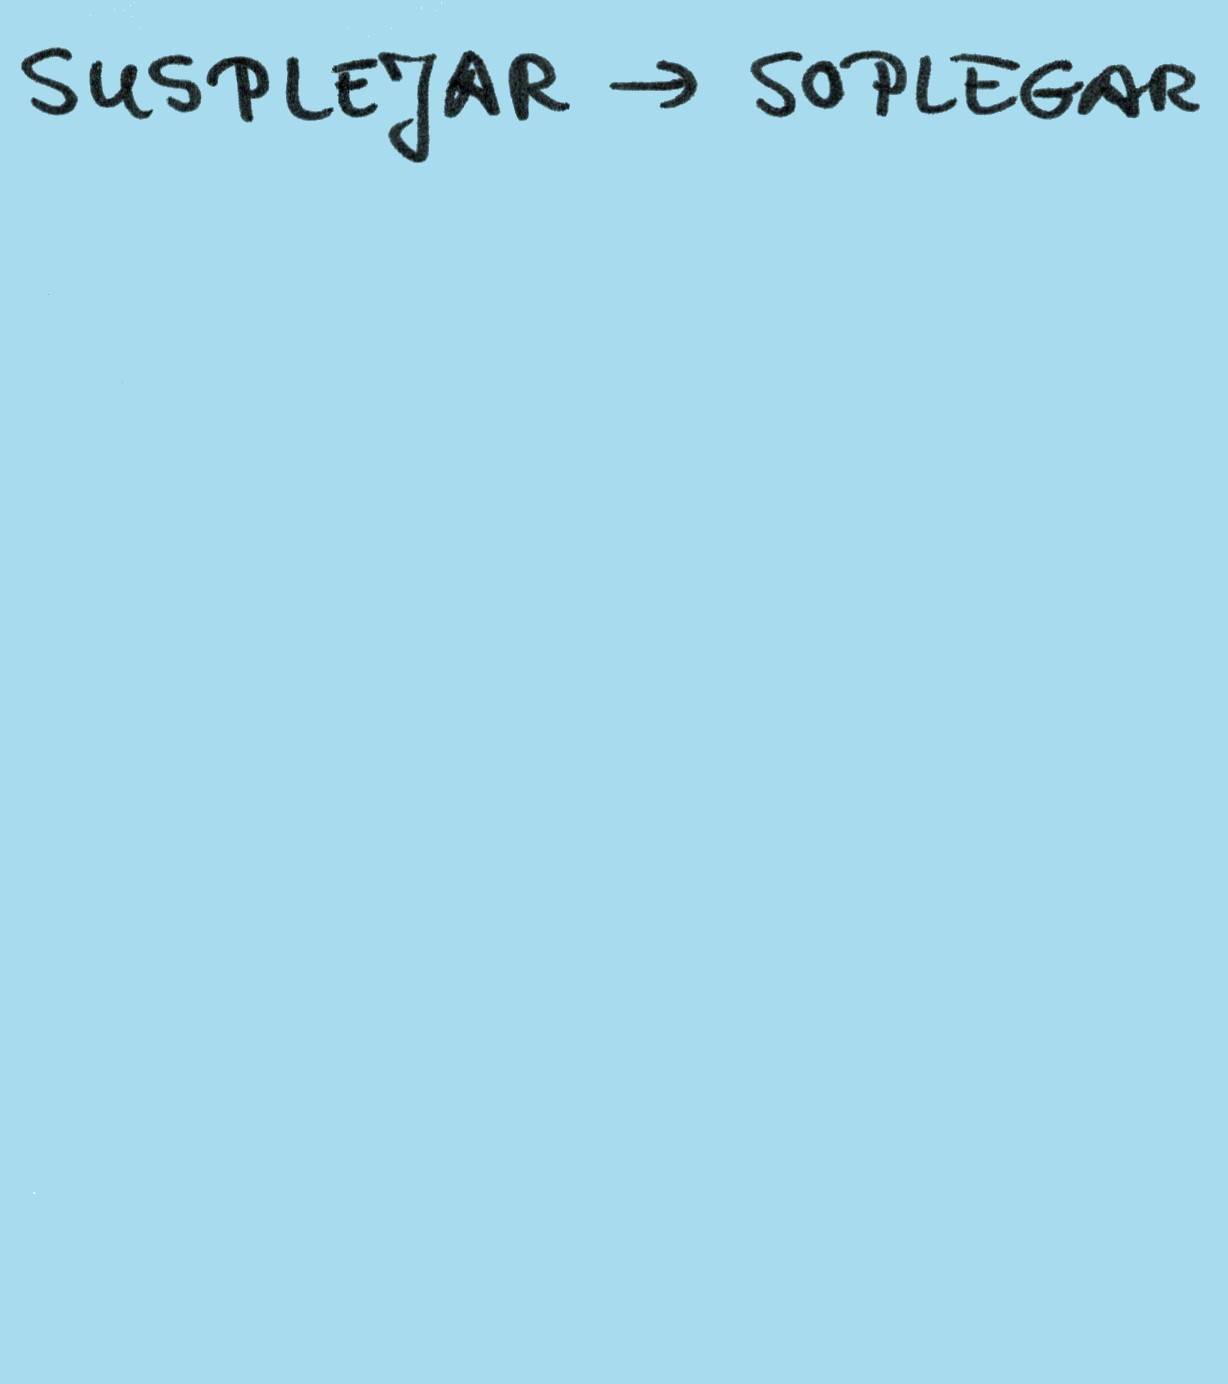 SUSPLEJAR → SOPLEGAR